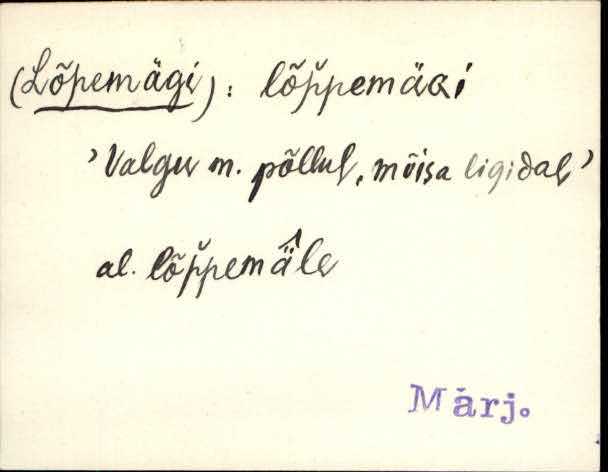 (Lõpemägi): lõp̆pemäɢi
’Valgu m. põllul, mõisa ligidal’
al. lõp̆pemä̂le
Märj.